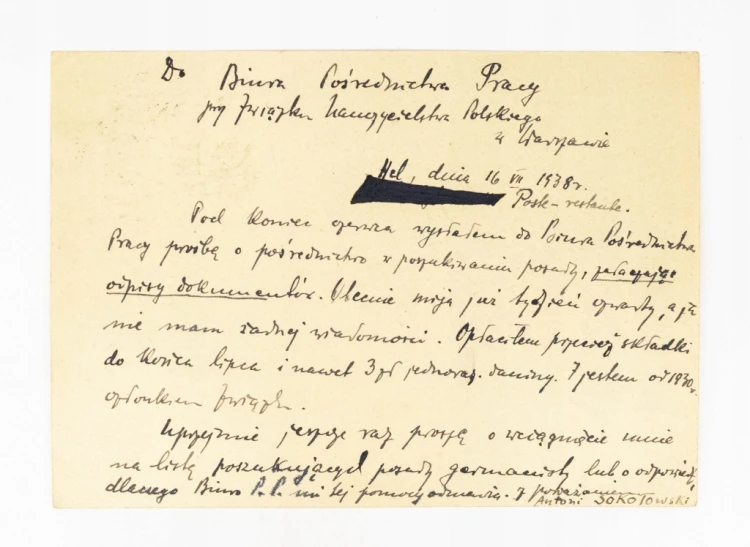 Do Biura Pośrednictwa Pracy
przy Związku Nauczycielstwa Polskiego
w Warszawie
Hel, dnia 16 VII 1938r.
Poste-restante.
Pod koniec czerwca wysłałem do Biura Pośrednictwa
Pracy prośbę o pośrednictwo w poszukiwaniu posady, załączając
odpisy dokumentów. Obecnie mija już tydzień czwarty, a ja
nie mam żadnej wiadomości. Opłaciłem przecież składki
do końca lipca i nawet 3 zł jednoraz. daniny. I jestem od 1930r.
członkiem Związku.
Uprzejmie jeszcze raz proszę o wciągnięcie mnie
na listę poszukujących posady germanisty lub o odpowiedź,
dlaczego Biuro P. P. mi tej pomocy odmawia. Z poważaniem
Antoni SOKOŁOWSKI